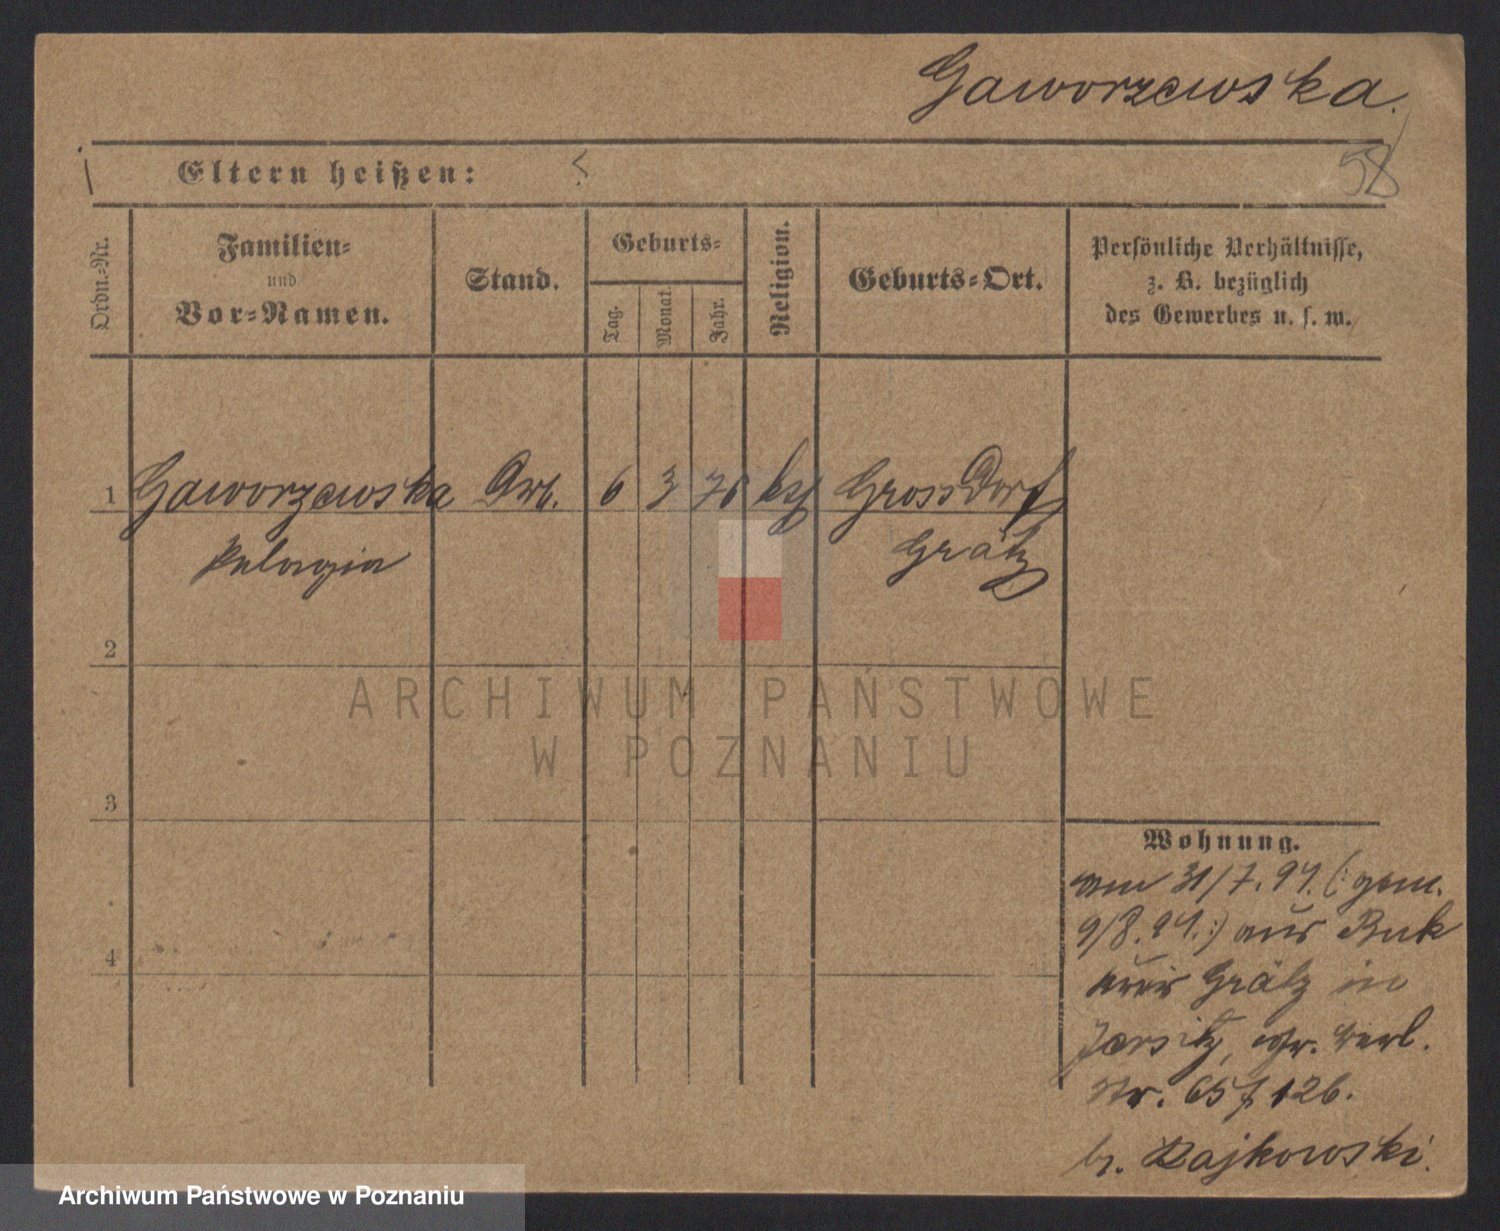 Gaworzewska.
58
Eltern heißen: ?
Ordn.-Nr.
Familien-
und
Vor-Namen.
Stand.
Geburts-
Tag.
Monat.
Jahr.
Religion.
Geburts-Ort.
Persönliche Verhältnisse,
z. B. bezüglich
des Gewerbes u. s. w.
1 Gaworzewska Arb. 6 3 76 kth GrossDorf
Pelagia Grätz
2
3
4
Wohnung.
am 31/7.94. (:gem.
9/8.94.:) aus Buk
Grätz in
Jersitz, Gr. Berl.
Str. 65 126.
b. Rajkowski.
ARCHIWUM PAŃSTWOWE
W POZNANIU
Archiwum Państwowe w Poznaniu